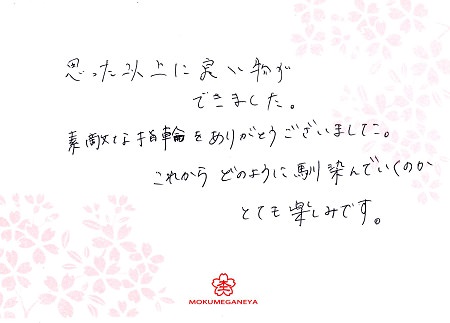 思った以上に良い物が
できました。
素敵な指輪をありがとうございました。
これから どのように馴染んでいくのか
とても楽しみです。
杢
MOKUMEGANEYA